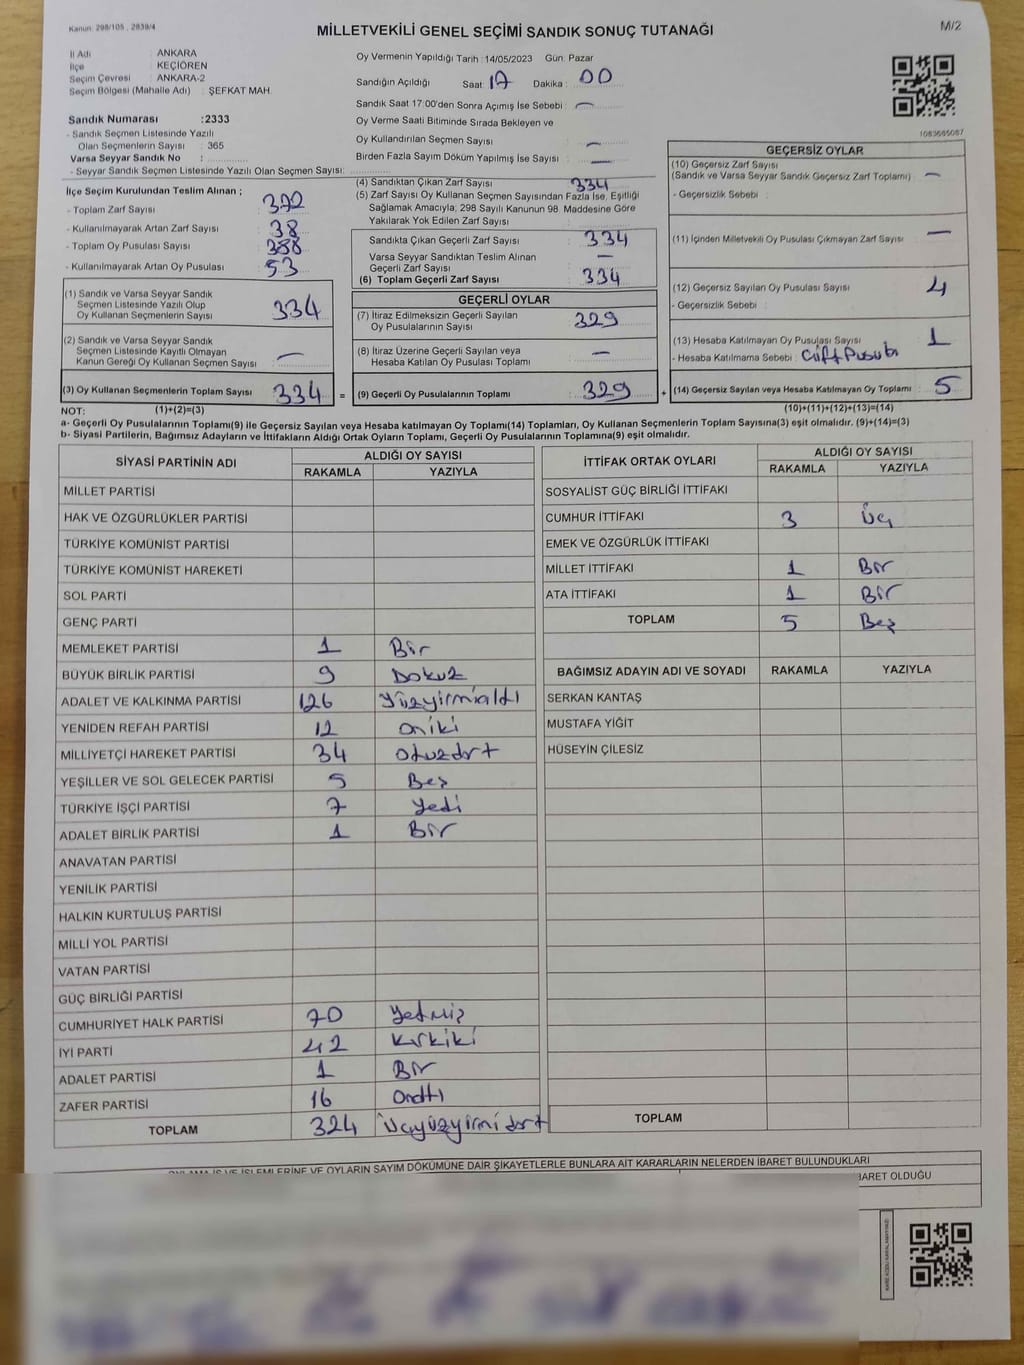 Kanun: 298/105 , 2839/4
MİLLETVEKİLİ GENEL SEÇİMİ SANDIK SONUÇ TUTANAĞI
M/2
İl Adı : ANKARA
İlçe : KEÇİÖREN
Seçim Çevresi : ANKARA-2
Seçim Bölgesi (Mahalle Adı) : ŞEFKAT MAH.
Sandık Numarası :2333
- Sandık Seçmen Listesinde Yazılı
Olan Seçmenlerin Sayısı : 365
Varsa Seyyar Sandık No :
- Seyyar Sandık Seçmen Listesinde Yazılı Olan Seçmen Sayısı:
Oy Vermenin Yapıldığı Tarih : 14/05/2023 Gün: Pazar
Sandığın Açıldığı Saat: 17 Dakika : 00
Sandık Saat 17:00'den Sonra Açımış İse Sebebi : —
Oy Verme Saati Bitiminde Sırada Bekleyen ve
Oy Kullandırılan Seçmen Sayısı : —
Birden Fazla Sayım Döküm Yapılmış İse Sayısı : —
1083665087
İlçe Seçim Kurulundan Teslim Alınan ;
- Toplam Zarf Sayısı : 372
- Kullanılmayarak Artan Zarf Sayısı : 38
- Toplam Oy Pusulası Sayısı : 388
- Kullanılmayarak Artan Oy Pusulası : 53
(1) Sandık ve Varsa Seyyar Sandık
Seçmen Listesinde Yazılı Olup
Oy Kullanan Seçmenlerin Sayısı : 334
(2) Sandık ve Varsa Seyyar Sandık
Seçmen Listesinde Kayıtlı Olmayan
Kanun Gereği Oy Kullanan Seçmen Sayısı : —
(3) Oy Kullanan Seçmenlerin Toplam Sayısı : 334
(4) Sandıktan Çıkan Zarf Sayısı : 334
(5) Zarf Sayısı Oy Kullanan Seçmen Sayısından Fazla İse, Eşitliği
Sağlamak Amacıyla; 298 Sayılı Kanunun 98. Maddesine Göre
Yakılarak Yok Edilen Zarf Sayısı :
Sandıkta Çıkan Geçerli Zarf Sayısı : 334
Varsa Seyyar Sandıktan Teslim Alınan
Geçerli Zarf Sayısı : —
(6) Toplam Geçerli Zarf Sayısı : 334
GEÇERLİ OYLAR
(7) İtiraz Edilmeksizin Geçerli Sayılan
Oy Pusulalarının Sayısı : 329
(8) İtiraz Üzerine Geçerli Sayılan veya
Hesaba Katılan Oy Pusulası Toplamı : —
= (9) Geçerli Oy Pusulalarının Toplamı : 329
GEÇERSİZ OYLAR
(10) Geçersiz Zarf Sayısı
(Sandık ve Varsa Seyyar Sandık Geçersiz Zarf Toplamı) : —
- Geçersizlik Sebebi :
(11) İçinden Milletvekili Oy Pusulası Çıkmayan Zarf Sayısı : —
(12) Geçersiz Sayılan Oy Pusulası Sayısı : 4
- Geçersizlik Sebebi :
(13) Hesaba Katılmayan Oy Pusulası Sayısı : 1
- Hesaba Katılmama Sebebi : Çift Pusula
+ (14) Geçersiz Sayılan veya Hesaba Katılmayan Oy Toplamı : 5
NOT: (1)+(2)=(3) (10)+(11)+(12)+(13)=(14)
a- Geçerli Oy Pusulalarının Toplamı(9) ile Geçersiz Sayılan veya Hesaba Katılmayan oy Toplamı(14) Toplamları, Oy Kullanan Seçmenlerin Toplam Sayısına(3) eşit olmalıdır. (9)+(14)=(3)
b- Siyasi Partilerin, Bağımsız Adayların ve İttifakların Aldığı Ortak Oyların Toplamı, Geçerli Oy Pusulalarının Toplamına(9) eşit olmalıdır.
SİYASİ PARTİNİN ADI ALDIĞI OY SAYISI
RAKAMLA YAZIYLA
MİLLET PARTİSİ
HAK VE ÖZGÜRLÜKLER PARTİSİ
TÜRKİYE KOMÜNİST PARTİSİ
TÜRKİYE KOMÜNİST HAREKETİ
SOL PARTİ
GENÇ PARTİ
MEMLEKET PARTİSİ 1 Bir
BÜYÜK BİRLİK PARTİSİ 9 Dokuz
ADALET VE KALKINMA PARTİSİ 126 Yüzyirmialtı
YENİDEN REFAH PARTİSİ 12 oniki
MİLLİYETÇİ HAREKET PARTİSİ 34 otuzdört
YEŞİLLER VE SOL GELECEK PARTİSİ 5 Beş
TÜRKİYE İŞÇİ PARTİSİ 7 Yedi
ADALET BİRLİK PARTİSİ 1 Bir
ANAVATAN PARTİSİ
YENİLİK PARTİSİ
HALKIN KURTULUŞ PARTİSİ
MİLLİ YOL PARTİSİ
VATAN PARTİSİ
GÜÇ BİRLİĞİ PARTİSİ
CUMHURİYET HALK PARTİSİ 70 Yetmiş
İYİ PARTİ 42 Kırkiki
ADALET PARTİSİ 1 Bir
ZAFER PARTİSİ 16 Onaltı
TOPLAM 324 Üçyüzyirmidört
İTTİFAK ORTAK OYLARI ALDIĞI OY SAYISI
RAKAMLA YAZIYLA
SOSYALİST GÜÇ BİRLİĞİ İTTİFAKI
CUMHUR İTTİFAKI 3 Üç
EMEK VE ÖZGÜRLÜK İTTİFAKI
MİLLET İTTİFAKI 1 Bir
ATA İTTİFAKI 1 Bir
TOPLAM 5 Beş
BAĞIMSIZ ADAYIN ADI VE SOYADI RAKAMLA YAZIYLA
SERKAN KANTAŞ
MUSTAFA YİĞİT
HÜSEYİN ÇİLESİZ
TOPLAM
OYLAMA İŞ VE İŞLEMLERİNE VE OYLARIN SAYIM DÖKÜMÜNE DAİR ŞİKAYETLERLE BUNLARA AİT KARARLARIN NELERDEN İBARET BULUNDUKLARI
İBARET OLDUĞU